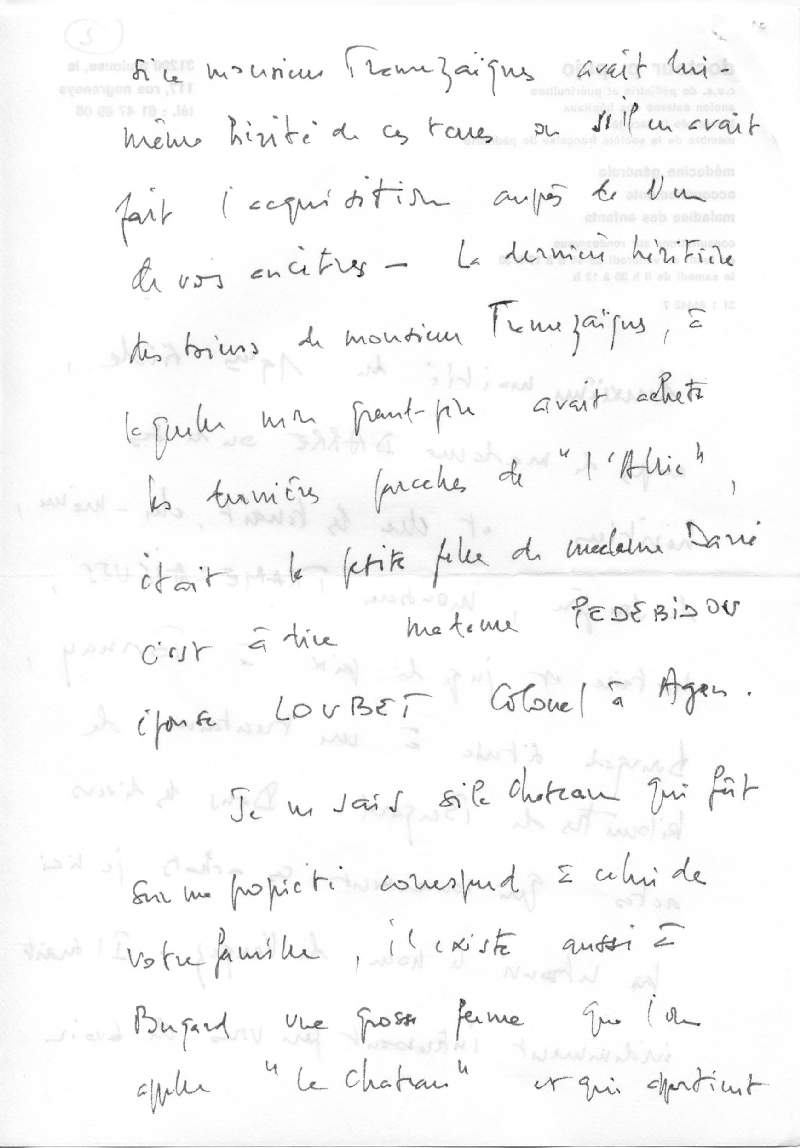 si ce monsieur Tramezaïgues avait lui-
même hérité de ces terres ou s'il en avait
fait l'acquisition auprès de l'un
de vos ancêtres - La dernière héritière
des biens de monsieur Tramezaïgues, à
laquelle mon grand-père avait acheté
les dernières parcelles de "l'Allée",
était la petite fille de madame Darré
c'est à dire madame PEDEBIDOU
épouse LOUBET Colonel à Agen.
Je ne sais si le chateau qui fût
sur ma propriété correspond à celui de
votre famille, il existe aussi à
Bugard une grosse ferme que l'on
appelle "le chateau" et qui appartient